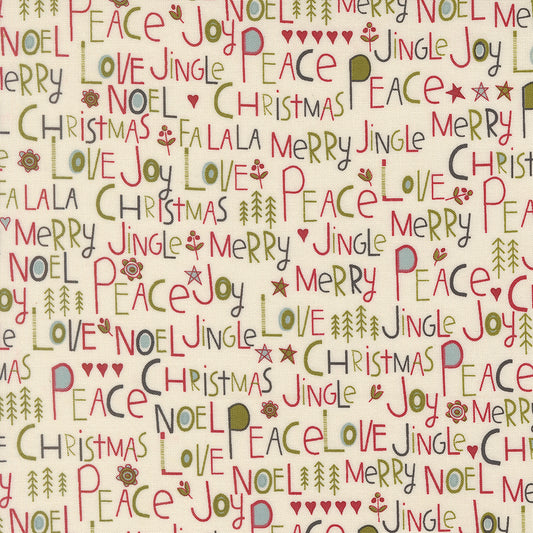 NOEL MERRY NOEL
NOEL PEACE JOY PEACE JINGLE
MERRY LOVE JINGLE PEACE MERRY
NOEL
CHRISTMAS FALALA MERRY JINGLE MERRY
LOVE JOY LOVE PEACE LOVE CHRISTMAS
FALALA CHRISTMAS JOY
MERRY JINGLE MERRY JINGLE MERRY
NOEL PEACE JOY LOVE MERRY PEACE
LOVE NOEL JINGLE JINGLE JOY
PEACE CHRISTMAS JINGLE CHRISTMAS PEACE
NOEL PEACE LOVE JINGLE JOY MERRY
CHRISTMAS LOVE NOEL MERRY NOEL
PEACE JOY JINGLE